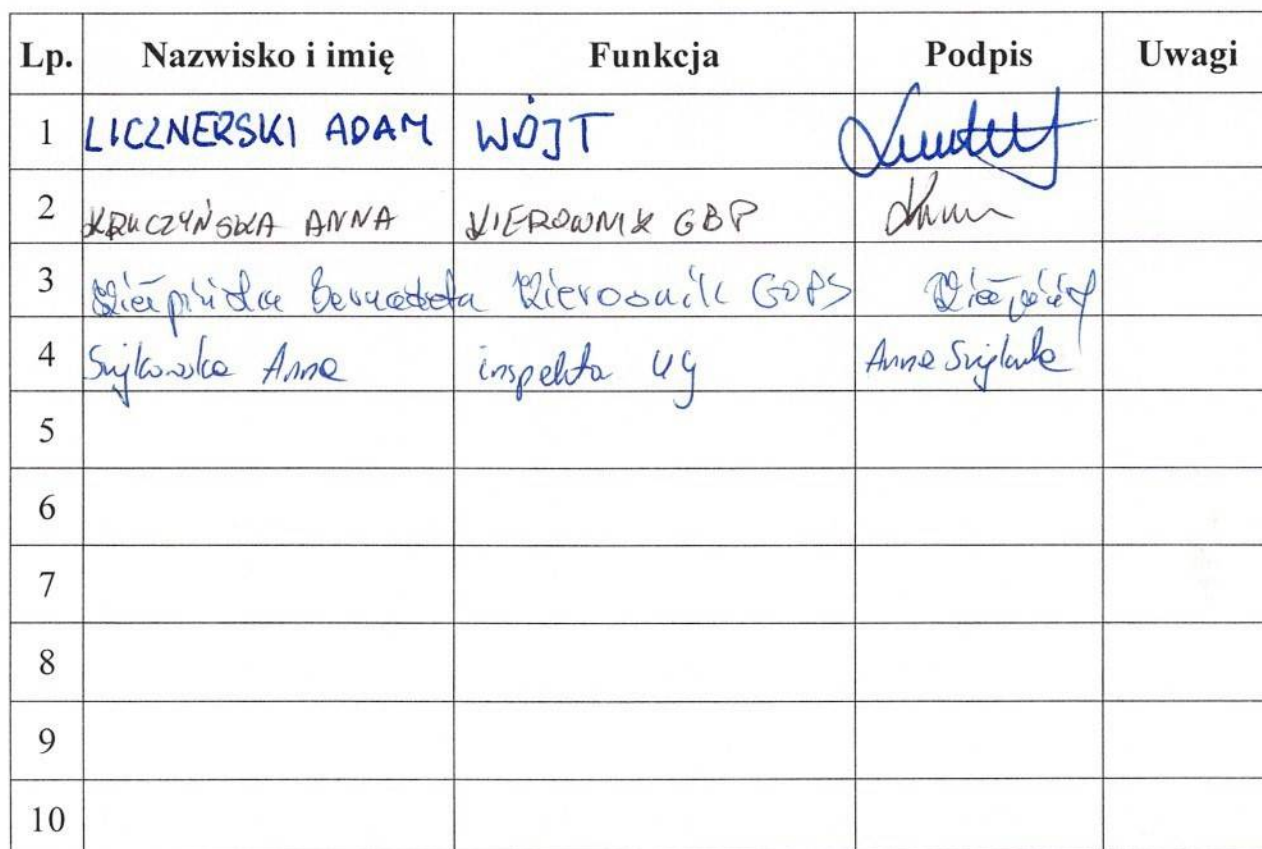 Lp. Nazwisko i imię Funkcja Podpis Uwagi
1 LICZNERSKI ADAM WÓJT
2 KRUCZYŃSKA ANNA KIEROWNIK GBP
3 Bernadeta Kierownik GOPS
4 Anna inspektor UG Anna
5
6
7
8
9
10